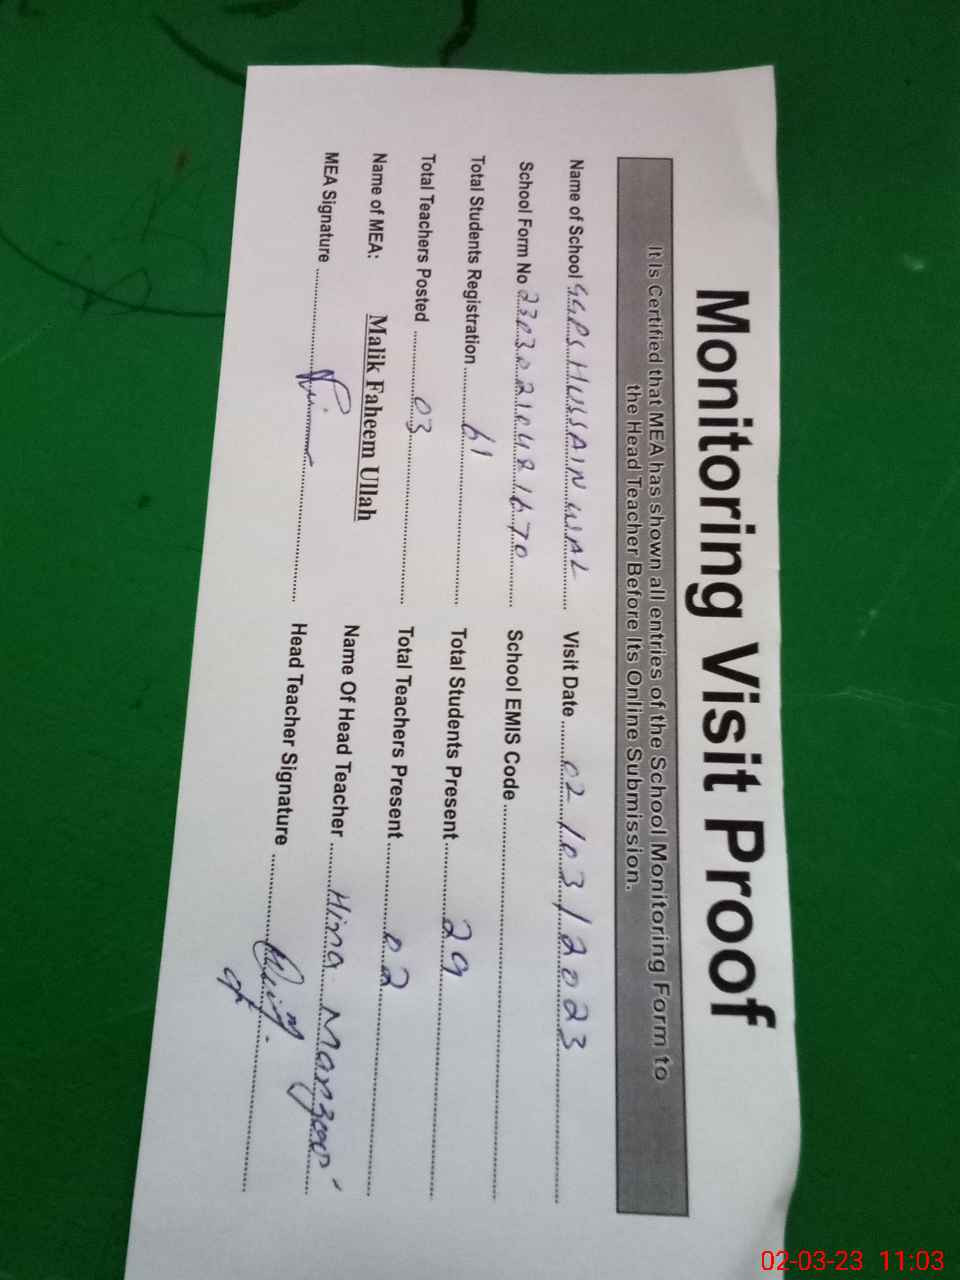 Monitoring Visit Proof
It Is Certified that MEA has shown all entries of the School Monitoring Form to
the Head Teacher Before Its Online Submission.
Name of School GGPS HUSSAIN WAL Visit Date 02/03/2023
School Form No 23030210481670 School EMIS Code
Total Students Registration 61 Total Students Present 29
Total Teachers Posted 03 Total Teachers Present 02
Name of MEA: Malik Faheem Ullah Name Of Head Teacher Hina Manzoor
MEA Signature Head Teacher Signature
02-03-23 11:03